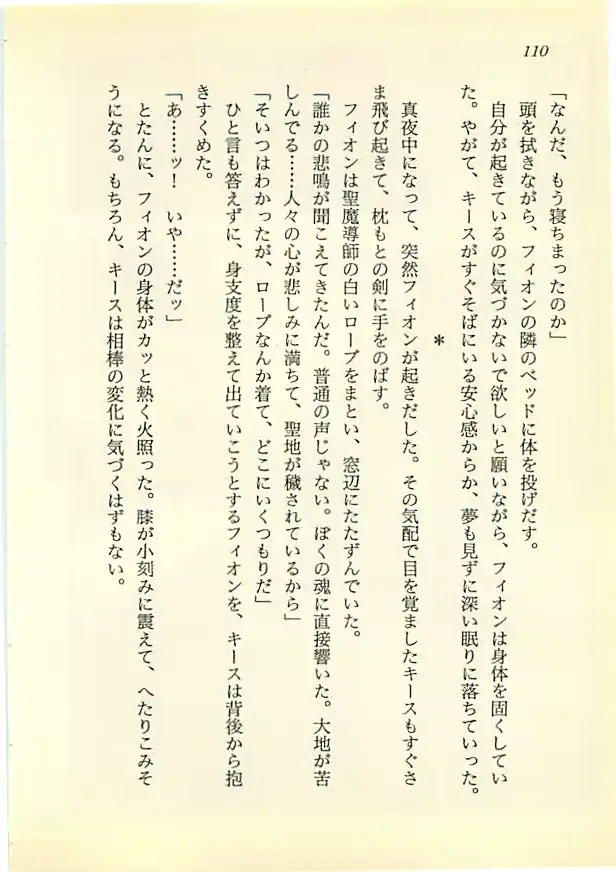 110
「なんだ、もう寝ちまったのか」
頭を拭きながら、フィオンの隣のベッドに体を投げだす。
自分が起きているのに気づかないで欲しいと願いながら、フィオンは身体を固くしてい
た。やがて、キースがすぐそばにいる安心感からか、夢も見ずに深い眠りに落ちていった。
*
真夜中になって、突然フィオンが起きだした。その気配で目を覚ましたキースもすぐさ
ま飛び起きて、枕もとの剣に手をのばす。
フィオンは聖魔導師の白いローブをまとい、窓辺にたたずんでいた。
「誰かの悲鳴が聞こえてきたんだ。普通の声じゃない。ぼくの魂に直接響いた。大地が苦
しんでる……人々の心が悲しみに満ちて、聖地が穢されているから」
「そいつはわかったが、ローブなんか着て、どこにいくつもりだ」
ひと言も答えずに、身支度を整えて出ていこうとするフィオンを、キースは背後から抱
きすくめた。
「あ……ッ！　いや……だッ」
とたんに、フィオンの身体がカッと熱く火照った。膝が小刻みに震えて、へたりこみそ
うになる。もちろん、キースは相棒の変化に気づくはずもない。